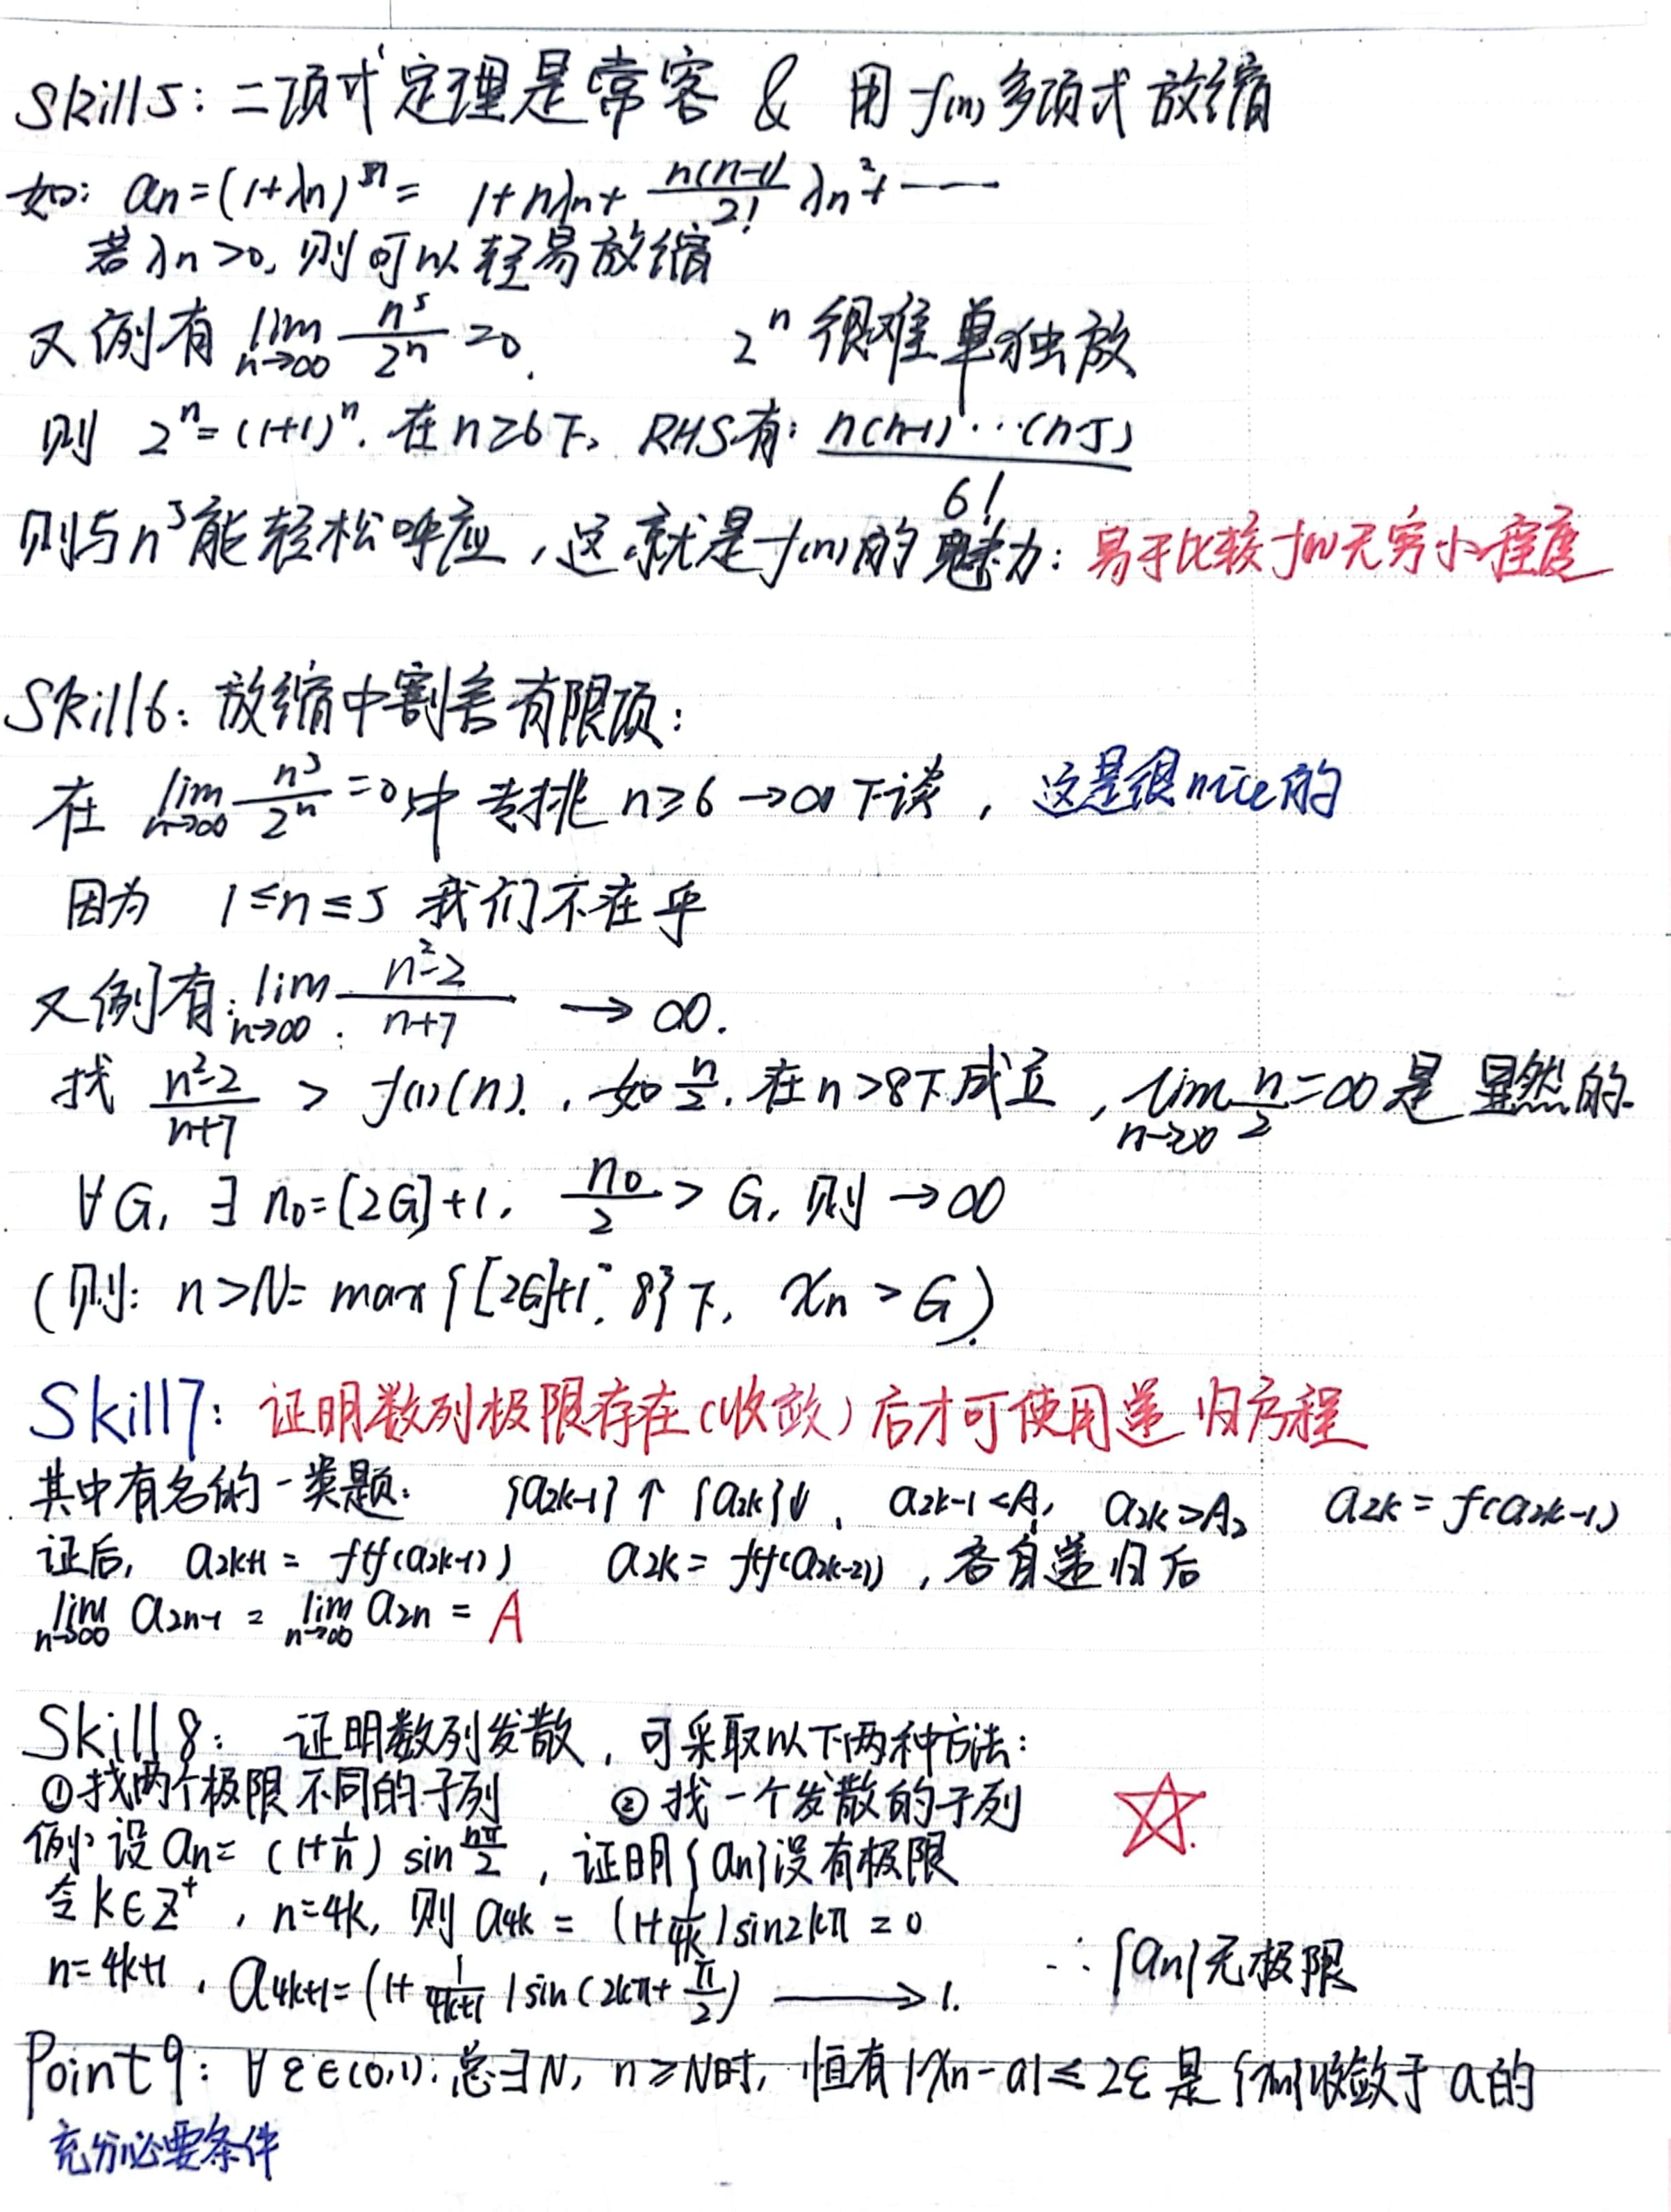 Skill5: 二项式定理是常客 & 用f(n)多项式放缩
如: an=(1+λn)^n= 1+nλn+ n(n-1)/2! λn²+······
若λn>0, 则可以轻易放缩
又例有 lim n→∞ n^5/2^n =0. 2^n 很难单独放
则 2^n=(1+1)^n. 在n≥6下, RHS有: n(n-1)···(n-5)/6!
则与n^5能轻松呼应, 这就是f(n)的魅力: 易于比较f(n)无穷小程度
Skill6: 放缩中割舍有限项:
在 lim n→∞ n^5/2^n =0中 专挑 n≥6→∞下谈, 这是很nice的
因为 1≤n≤5 我们不在乎
又例有: lim n→∞ n²-2/n+7 → ∞.
找 n²-2/n+7 > f(1)(n). , 如 n/2. 在n>8下成立, lim n→∞ n/2=∞是 显然的.
∀G, ∃ n0=[2G]+1, n0/2 > G, 则→∞
(则: n>N= max{[2G]+1, 8}下, xn > G).
Skill7: 证明数列极限存在(收敛)后才可使用递归方程
其中有名的一类题: {a2k-1}↑ {a2k}↓, a2k-1<A, a2k>A, a2k=f(a2k-1)
证后, a2k+1 = f(f(a2k-1)) a2k = f(f(a2k-2)), 各自递归后
lim n→∞ a2n-1 = lim n→∞ a2n = A
Skill8: 证明数列发散, 可采取以下两种方法:
①找两个极限不同的子列 ②找一个发散的子列
例: 设an=(1+1/n) sin nπ/2, 证明{an}没有极限
令k∈Z⁺, n=4k, 则 a4k = (1+1/4k)sin2kπ = 0
n=4k+1, a4k+1=(1+1/4k+1)sin(2kπ+π/2) → 1. ∴{an}无极限
Point9: ∀ε∈(0,1), 总∃N, n≥N时, 恒有|xn-a|≤2ε 是{xn}收敛于a的
充分必要条件